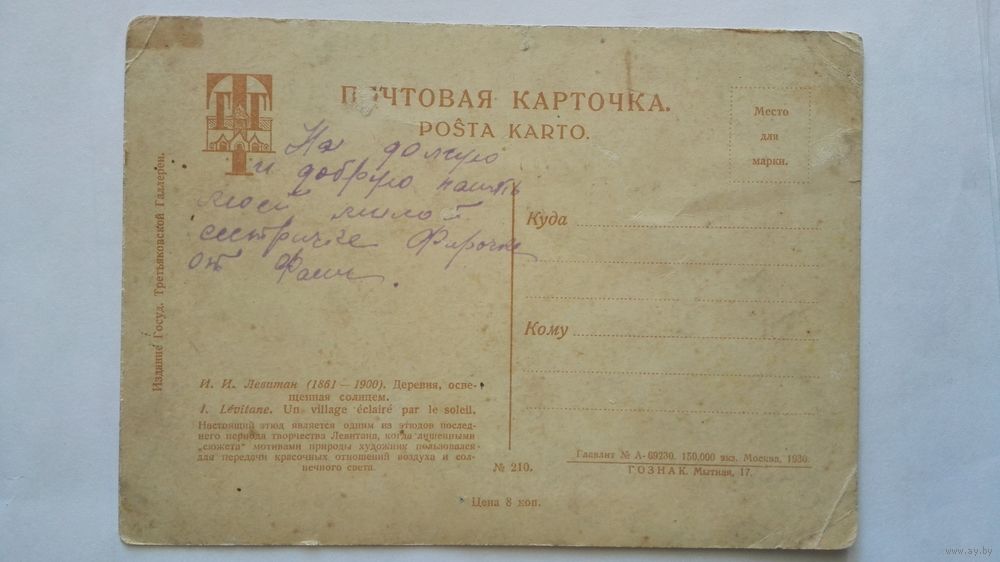 ПОЧТОВАЯ КАРТОЧКА.
POŜTA KARTO.
Место
для
марки.
На долгую
и добрую память
моей милой
сестричке Фирочке
от Фани.
Куда
Кому
Издание Госуд. Третьяковской Галлереи.
И. И. Левитан (1861—1900). Деревня, осве-
щенная солнцем.
I. Lévitane. Un village éclairé par le soleil.
Настоящий этюд является одним из этюдов послед-
него периода творчества Левитана, когда лушенными
„сюжета" мотивами природы художник пользовался
для передачи красочных отношений воздуха и сол-
нечного света.
№ 210.
Главлит № А-69230. 150,000 экз. Москва, 1930.
ГОЗНАК. Мытная, 17.
Цена 8 коп.
www.ay.by